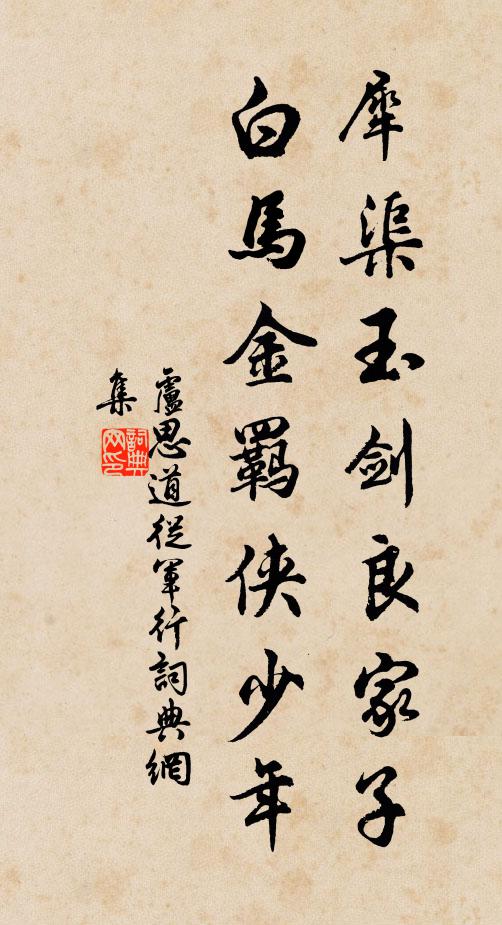 犀渠玉剑良家子
白馬金羁侠少年
盧思道從軍行詞典網
集
詞典
网印